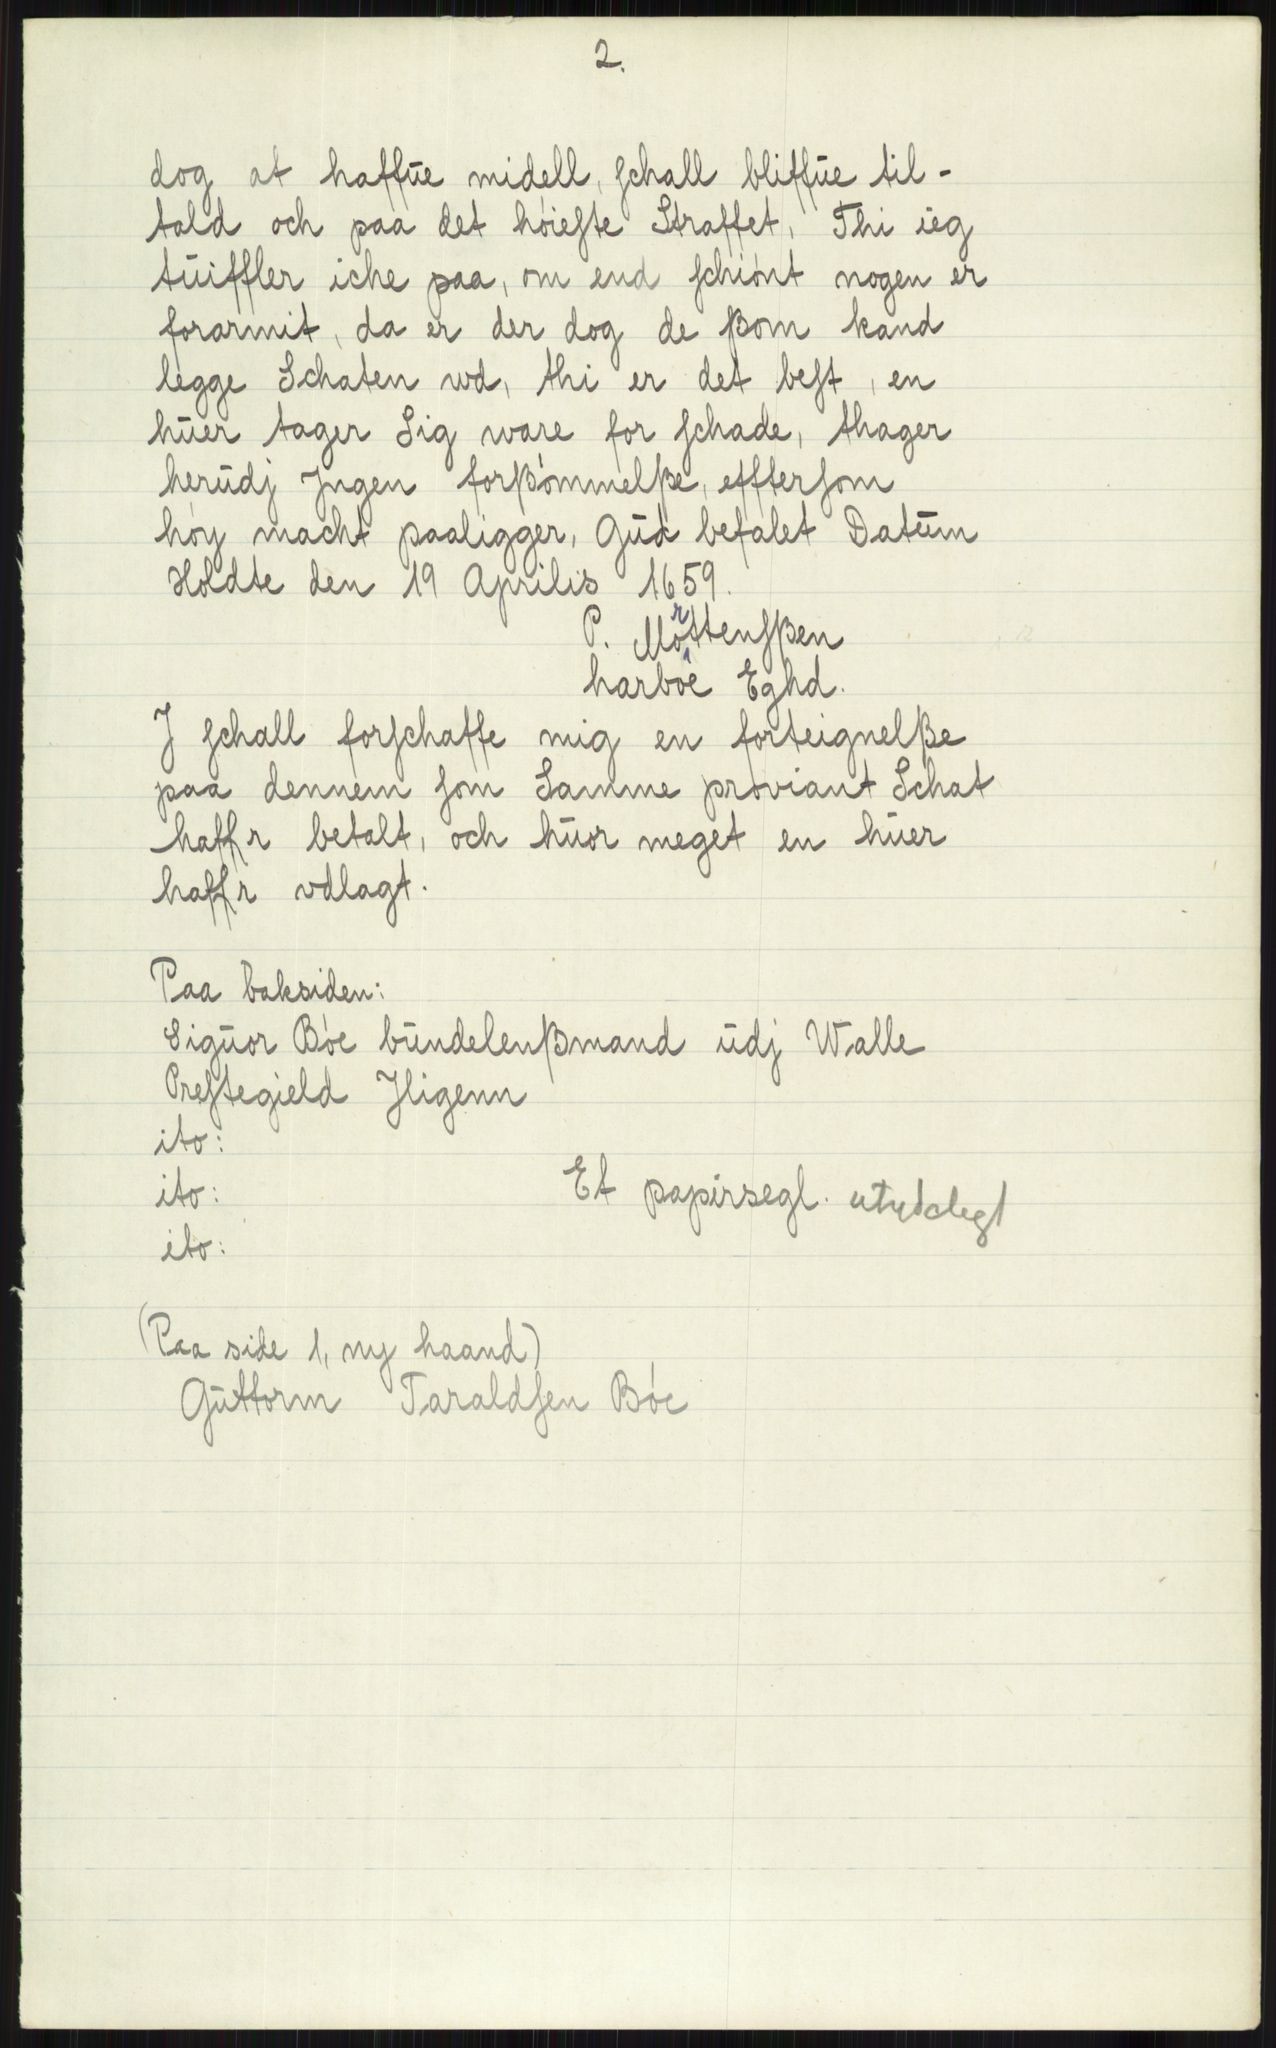 2.
dog at haffue midell, schall bliffue til-
tald och paa det höieste Straffet, Thi ieg
tuiffler iche paa, om end schiönt nogen er
forarmit, da er der dog de ßom kand
legge Schaten wd, thi er det best, en
huer tager Sig ware for schade, thager
herudj Jngen forßömmelße, efftersom
höy macht paaligger, Gud befalet Datum
Holdte den 19 Aprilis 1659.
P. Mortensßen
harboe Eghd.
J schall forschaffe mig en forteignelße
paa dennem som Samme proviant Schat
haffr betalt, och huor meget en huer
haffr vdlagt.
Paa baksiden:
Siguor Böe bundelenßmand udj Walle
Prestegield Jligenn
ito:
ito: Et papirsegl. utydelegt
ito:
(Paa side 1, ny haand)
Guttorm Taraldsen Böe